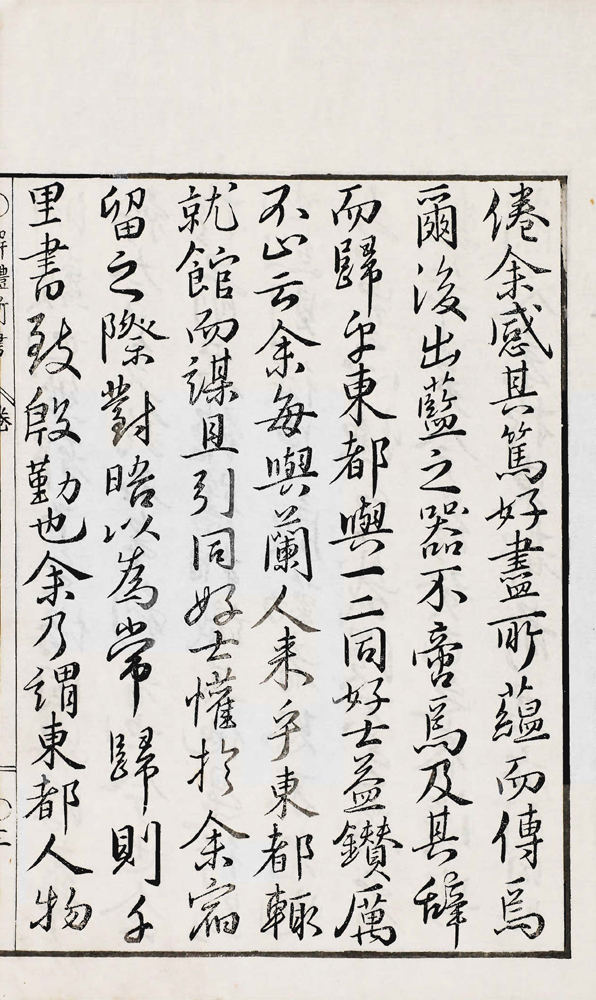 倦余感其篤好盡所蘊而傳焉
爾後出藍之器不啻焉及其辭
而歸乎東都與一二同好士益鑽厲
不止云余每與蘭人来乎東都輙
就館而謀且引同好士懽於余宿
留之際對晤以為常歸則千
里書致殷勤也余乃謂東都人物
解體新書 卷